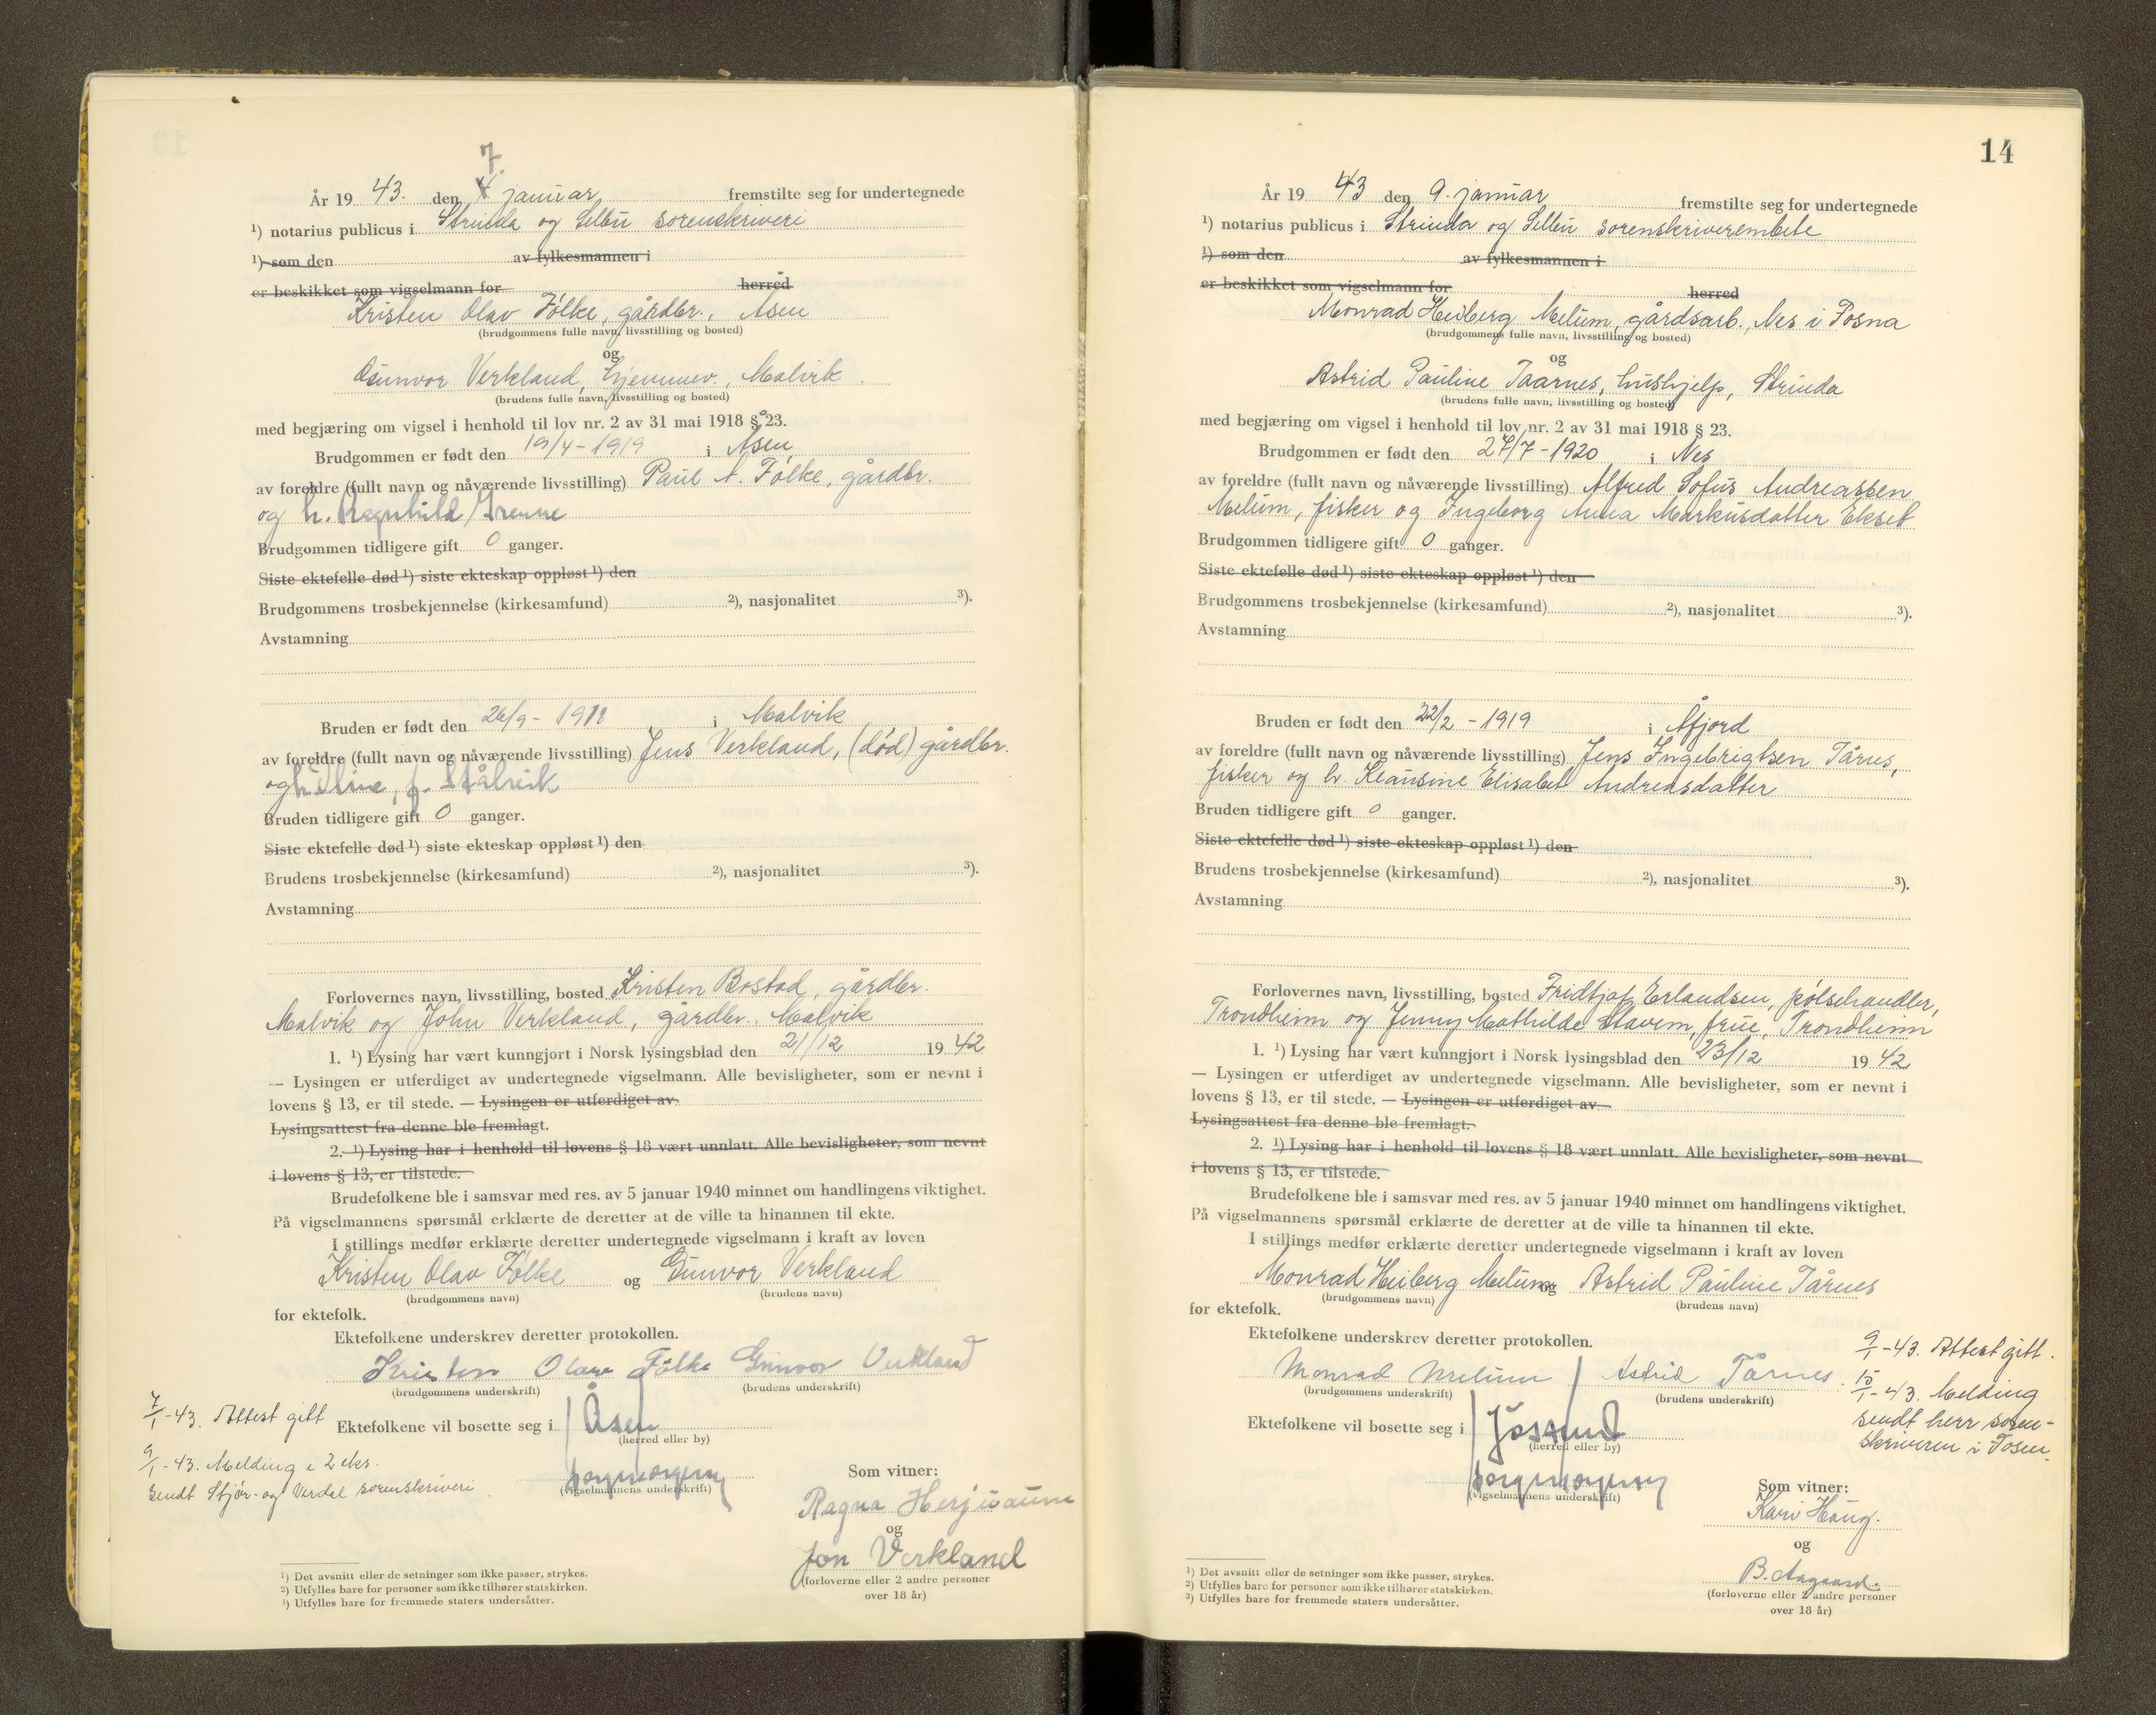 7.
År 19 43. den 4 januar fremstilte seg for undertegnede
¹) notarius publicus i Strinda og Selbu sorenskriveri
¹) som den av fylkesmannen i
er beskikket som vigselmann for herred
Kristen Olav Følke, gårdbr., Åsen
(brudgommens fulle navn, livsstilling og bosted)
og
Gunvor Verkland, hjemmev., Malvik.
(brudens fulle navn, livsstilling og bosted)
med begjæring om vigsel i henhold til lov nr. 2 av 31 mai 1918 § 23.
Brudgommen er født den 19/4 - 1919 i Åsen
av foreldre (fullt navn og nåværende livsstilling) Paul A. Følke, gårdbr.
og h. Ragnhild Grenne
Brudgommen tidligere gift 0 ganger.
Siste ektefelle død ¹) siste ekteskap oppløst ¹) den
Brudgommens trosbekjennelse (kirkesamfund) ²), nasjonalitet ³).
Avstamning
Bruden er født den 26/9 - 1918 i Malvik
av foreldre (fullt navn og nåværende livsstilling) Jens Verkland, (død) gårdbr.
og h. f.
Bruden tidligere gift 0 ganger.
Siste ektefelle død ¹) siste ekteskap oppløst ¹) den
Brudens trosbekjennelse (kirkesamfund) ²), nasjonalitet ³).
Avstamning
Forlovernes navn, livsstilling, bosted Kristen Bostad, gårdbr.
Malvik og John Verkland, gårdbr. Malvik
1. ¹) Lysing har vært kunngjort i Norsk lysingsblad den 21/12 19 42
— Lysingen er utferdiget av undertegnede vigselmann. Alle bevisligheter, som er nevnt i
lovens § 13, er til stede. — Lysingen er utferdiget av
Lysingsattest fra denne ble fremlagt.
2. ¹) Lysing har i henhold til lovens § 18 vært unnlatt. Alle bevisligheter, som nevnt
i lovens § 13, er tilstede.
Brudefolkene ble i samsvar med res. av 5 januar 1940 minnet om handlingens viktighet.
På vigselmannens spørsmål erklærte de deretter at de ville ta hinannen til ekte.
I stillings medfør erklærte deretter undertegnede vigselmann i kraft av loven
Kristen Olav Følke og Gunvor Verkland
(brudgommens navn) (brudens navn)
for ektefolk.
Ektefolkene underskrev deretter protokollen.
Kristen Olav Følke Gunvor Verkland
(brudgommens underskrift) (brudens underskrift)
7/1 - 43. Attest gitt
Ektefolkene vil bosette seg i Åsen
(herred eller by)
9/1 - 43. Melding i 2 eks.
sendt Stjør- og Verdal sorenskriveri
(vigselmannens underskrift)
Som vitner:
Ragna
og
Jon Verkland
(forloverne eller 2 andre personer
over 18 år)
¹) Det avsnitt eller de setninger som ikke passer, strykes.
²) Utfylles bare for personer som ikke tilhører statskirken.
³) Utfylles bare for fremmede staters undersåtter.
14
År 19 43 den 9. januar fremstilte seg for undertegnede
¹) notarius publicus i Strinda og Selbu sorenskriverembete
¹) som den av fylkesmannen i
er beskikket som vigselmann for herred
Monrad Heiberg Melum, gårdsarb., Nes i Fosna
(brudgommens fulle navn, livsstilling og bosted)
og
Astrid Pauline Taarnes, hushjelp, Strinda
(brudens fulle navn, livsstilling og bosted)
med begjæring om vigsel i henhold til lov nr. 2 av 31 mai 1918 § 23.
Brudgommen er født den 27/7 - 1920 i Nes
av foreldre (fullt navn og nåværende livsstilling) Alfred Sofus Andreassen
Melum, fisker og Ingeborg Anna Markusdatter Ekset
Brudgommen tidligere gift 0 ganger.
Siste ektefelle død ¹) siste ekteskap oppløst ¹) den
Brudgommens trosbekjennelse (kirkesamfund) ²), nasjonalitet ³).
Avstamning
Bruden er født den 22/2 - 1919 i Åfjord
av foreldre (fullt navn og nåværende livsstilling) Jens Ingebrigtsen Tårnes,
fisker og h. Klausine Elisabet Andreasdatter
Bruden tidligere gift 0 ganger.
Siste ektefelle død ¹) siste ekteskap oppløst ¹) den
Brudens trosbekjennelse (kirkesamfund) ²), nasjonalitet ³).
Avstamning
Forlovernes navn, livsstilling, bosted Fridtjof Erlandsen, pølsehandler,
Trondheim og Jenny Mathilde Stavem, frue, Trondheim
1. ¹) Lysing har vært kunngjort i Norsk lysingsblad den 23/12 19 42
— Lysingen er utferdiget av undertegnede vigselmann. Alle bevisligheter, som er nevnt i
lovens § 13, er til stede. — Lysingen er utferdiget av
Lysingsattest fra denne ble fremlagt.
2. ¹) Lysing har i henhold til lovens § 18 vært unnlatt. Alle bevisligheter, som nevnt
i lovens § 13, er tilstede.
Brudefolkene ble i samsvar med res. av 5 januar 1940 minnet om handlingens viktighet.
På vigselmannens spørsmål erklærte de deretter at de ville ta hinannen til ekte.
I stillings medfør erklærte deretter undertegnede vigselmann i kraft av loven
Monrad Heiberg Melum og Astrid Pauline Tårnes
(brudgommens navn) (brudens navn)
for ektefolk.
Ektefolkene underskrev deretter protokollen.
Monrad Melum Astrid Tårnes
(brudgommens underskrift) (brudens underskrift)
9/1 - 43. Attest gitt.
15/1 - 43. Melding
sendt herr soren-
skriveren i Fosen.
Ektefolkene vil bosette seg i Jøssund
(herred eller by)
(vigselmannens underskrift)
Som vitner:
Kari Haug.
og
B. Aagaard.
(forloverne eller 2 andre personer
over 18 år)
¹) Det avsnitt eller de setninger som ikke passer, strykes.
²) Utfylles bare for personer som ikke tilhører statskirken.
³) Utfylles bare for fremmede staters undersåtter.